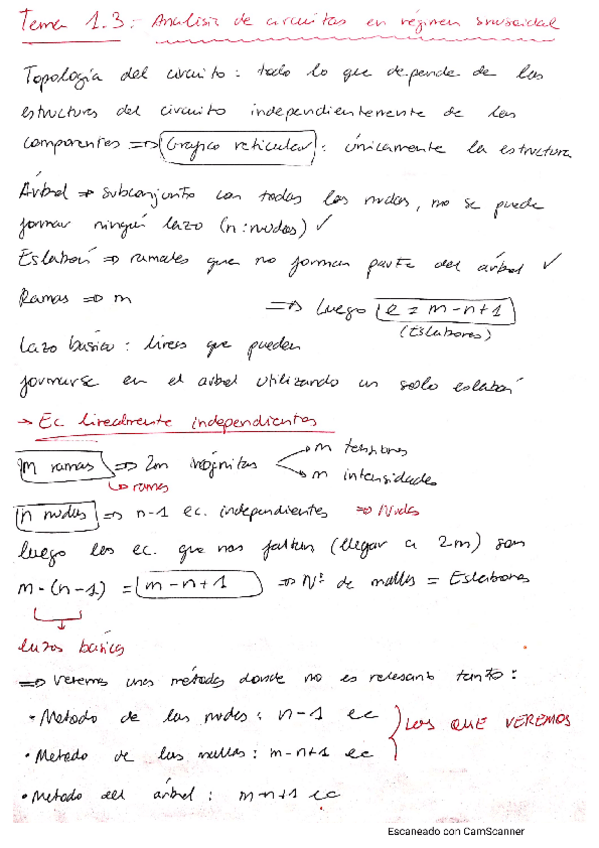 Tema 1.3: Análisis de circuitos en régimen sinusoidal
Topología del circuito: todo lo que depende de las
estructuras del circuito independientemente de los
componentes => Grafico reticular: únicamente la estructura
Árbol => subconjunto con todos los nudos, no se puede
formar ningún lazo (n: nudos) ✓
Eslabón => ramales que no forman parte del árbol ✓
Ramas => m => luego e = m-n+1
(Eslabones)
Lazo básico: líneas que pueden
formarse en el arbol utilizando un solo eslabón
→ Ec linealmente independientes
m ramas => 2m incógnitas m tensiones
m intensidades
↳ ramas
n nudos => n-1 ec. independientes => Nudos
luego las ec. que nos faltan (llegar a 2m) son
m-(n-1) = m-n+1 => Nº de mallas = Eslabones
lazos básicos
=> Veremos unos métodos donde no es relevante tanto:
• Metodo de los nudos: n-1 ec
LOS QUE VEREMOS
• Metodo de las mallas: m-n+1 ec
• Metodo del árbol: m-n+1 ec
Escaneado con CamScanner